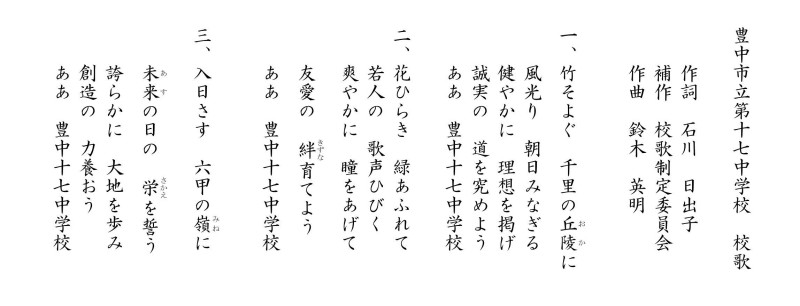 豊中市立第十七中学校　校歌
作詞　石川　日出子
補作　校歌制定委員会
作曲　鈴木　英明
一、竹そよぐ　千里の丘陵に
おか
風光り　朝日みなぎる
健やかに　理想を掲げ
誠実の　道を究めよう
ああ　豊中十七中学校
二、花ひらき　緑あふれて
若人の　歌声ひびく
爽やかに　瞳をあげて
友愛の　絆育てよう
きずな
ああ　豊中十七中学校
三、入日さす　六甲の嶺に
みね
未来の日の　栄を誓う
あす　さかえ
誇らかに　大地を歩み
創造の　力養おう
ああ　豊中十七中学校